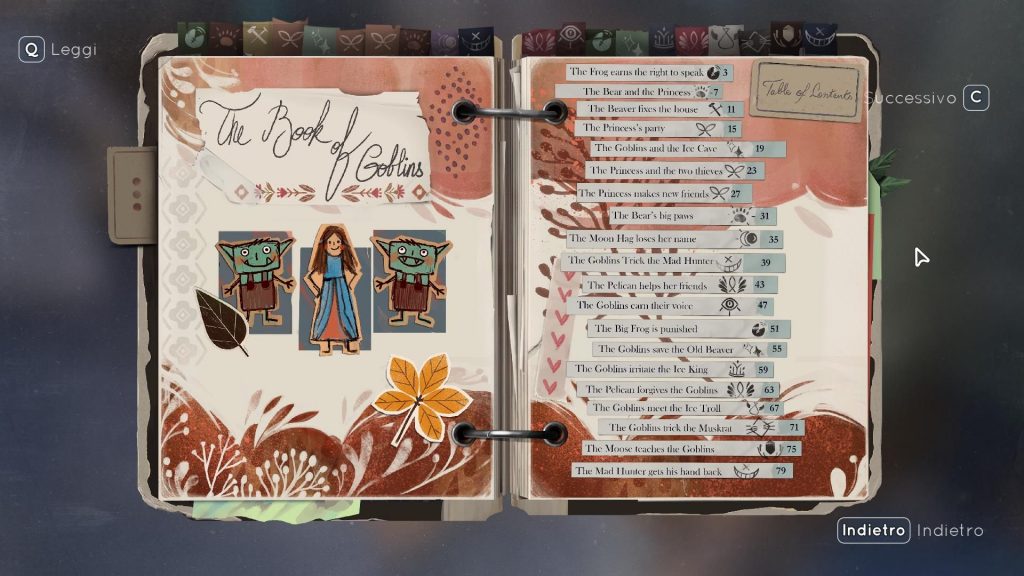 Q Leggi
The Book of
Goblins
Table of Contents
Successivo C
The Frog earns the right to speak 3
The Bear and the Princess 7
The Beaver fixes the house 11
The Princess's party 15
The Goblins and the Ice Cave 19
The Princess and the two thieves 23
The Princess makes new friends 27
The Bear's big paws 31
The Moon Hag loses her name 35
The Goblins Trick the Mad Hunter 39
The Pelican helps her friends 43
The Goblins earn their voice 47
The Big Frog is punished 51
The Goblins save the Old Beaver 55
The Goblins irritate the Ice King 59
The Pelican forgives the Goblins 63
The Goblins meet the Ice Troll 67
The Goblins trick the Muskrat 71
The Moose teaches the Goblins 75
The Mad Hunter gets his hand back 79
Indietro Indietro